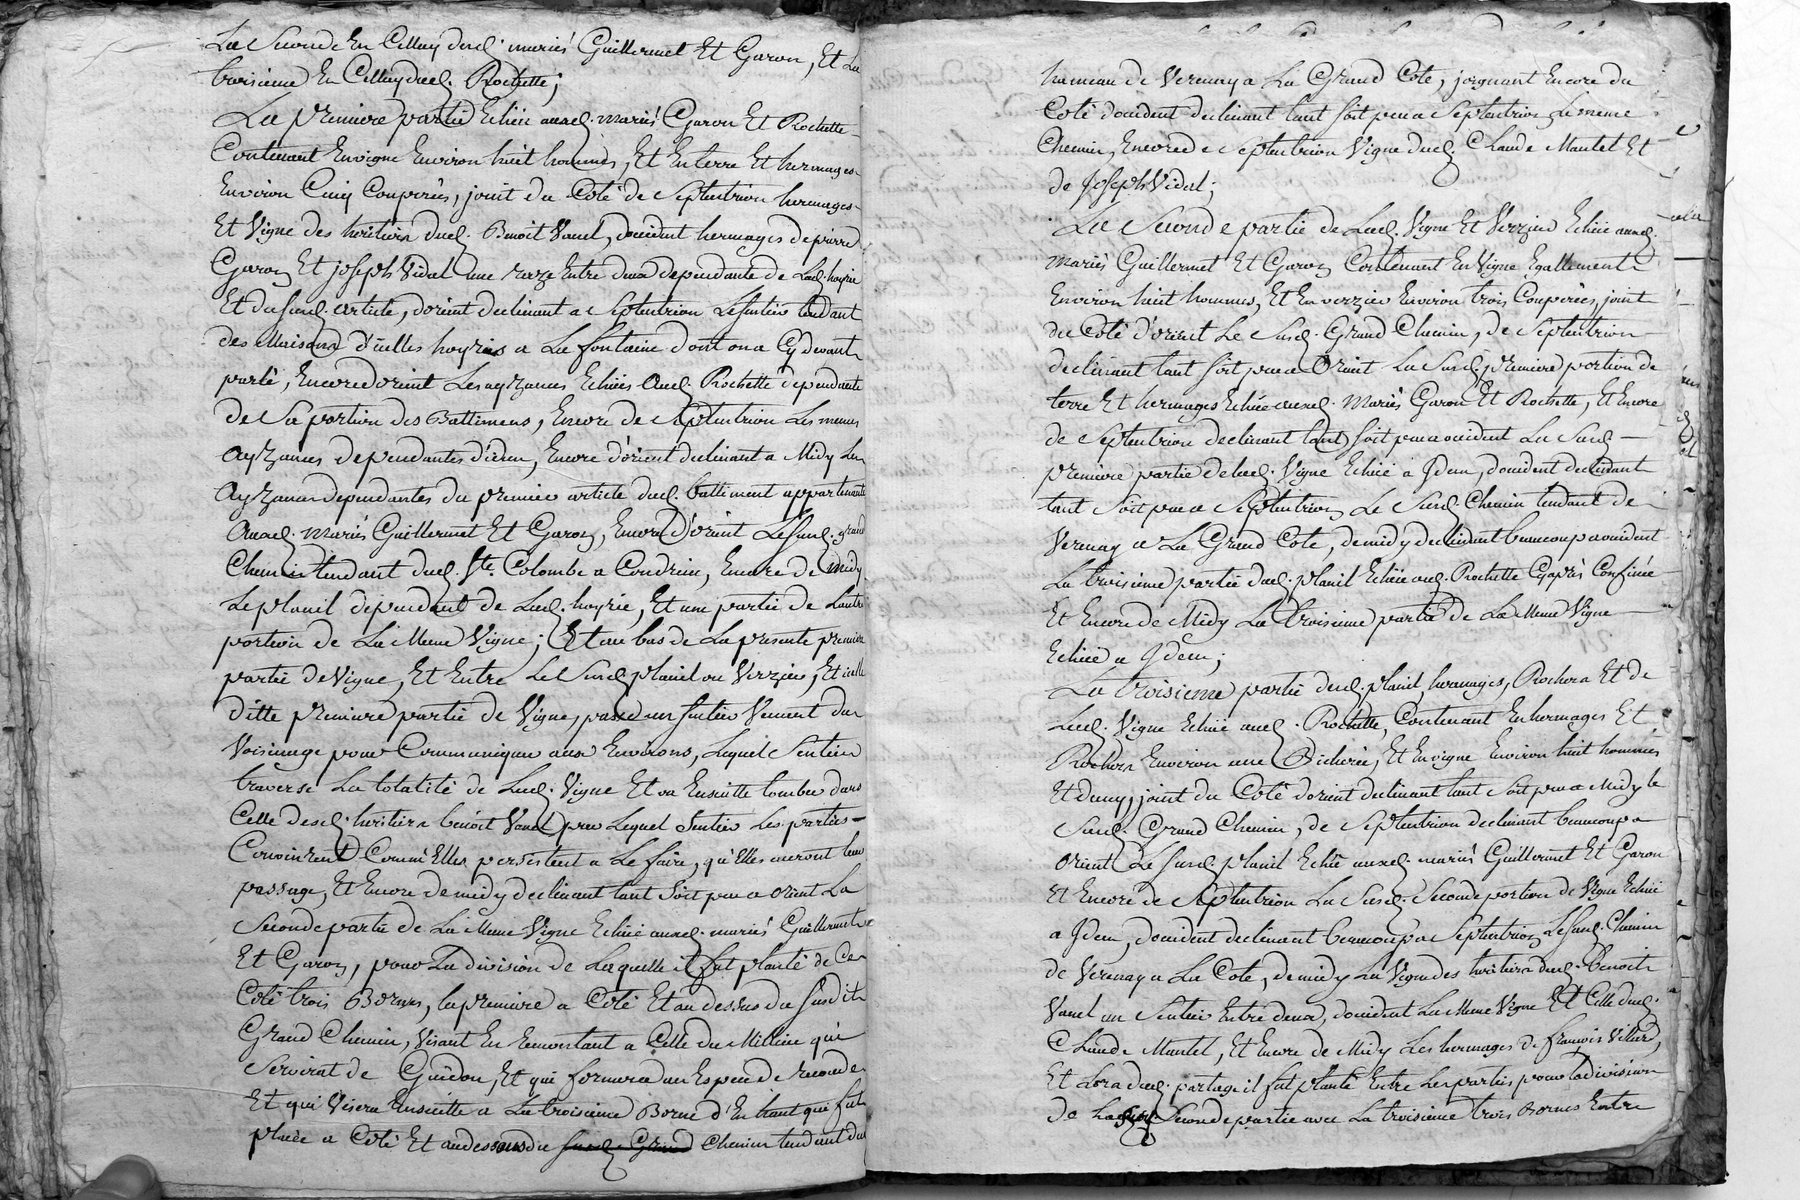 La Seconde En Celluy desd. mariés Guillermet Et Garon, Et La
troisieme En Celluy dud. Rochette;
La premiere partie Echüe auxd. mariés Garon Et Rochette
Contenant En vigne Environ huit hommés, Et En terre Et hermages
Environ Cinq Couperées, joint du Coté de Septentrion hermages
Et Vigne des héritiers dud. Benoit Vanel, doccident hermages de pierre
Garon Et joseph Vidal une raze Entre deux dependante de Lad. hoyrie
Et du Susd. article, dorient declinant a Septentrion Le Sentier tendant
des Maisons d'icelles hoyries a La fontaine dont on a Cy devant
parlé, Encore dorient Les ayzances Echües aud. Rochette dependante
de Sa portion des Battimens, Encore de Septentrion Les memes
ayzances dependantes d'idem, Encore d'orient declinant a Midy Les
ayzances dependantes du premier article dud. battiment appartenants
auxd. mariés Guillermet Et Garon, Encore D'orient Le Susd. grand
Chemin tendant dud. Ste. Colombe a Condrieu, Encore de midy
Le planil dependant de Lad. hoyrie, Et une partie de Lautre
portion de La Meme Vigne; Et au bas de La presente premiere
partie de Vigne, Et Entre Le Susd. planil ou Verzier, Et icelle
ditte premiere partie de Vigne, passe un Sentier Venant du
Voisinage pour Communiquer aux Environs, Lequel Sentier
traverse La totalité de Lad. Vigne Et va Ensuitte tomber dans
Celle desd. héritiers benoit Vanel par Lequel Sentier Les parties
Convinrent Comm'Elles persistent a Le faire, qu'Elles auront leur
passage, Et Encore de midy declinant tant Soit peu a orient La
Seconde partie de La Meme Vigne Echüe auxd. mariés Guillermet
Et Garon, pour La division de Laquelle il fut planté de Ce
Coté trois Bornes, la premiere a Coté Et au dessus du Susdit
Grand Chemin, Visant En Remontant a Celle du Millieu qui
Servirat de Guidon, Et qui formera un Espece de
Et qui Visera Ensuitte a La troisieme Borne d'En haut qui fut
placée a Coté Et au dessous du Susd. Grand Chemin tendant du
hameau de Verenay a La Grand Cote, joignant Encore du
Coté doccident declinant tant Soit peu a Septentrion Le meme
Chemin, Encore de Septentrion Vigne dud. Claude Mantel Et
de Joseph Vidal;
La Seconde partie de Lad. Vigne Et Verzier Echüe auxd.
Mariés Guillermet Et Garon Contenant En Vigne Egallement
Environ huit hommés, Et En verzier Environ trois Couperées, joint
du Coté d'orient Le Susd. Grand Chemin, de Septentrion
declinant tant Soit peu a Orient La Susd. premiere portion de
terre Et hermages Echüe auxd. Mariés Garon Et Rochette, Et Encore
de Septentrion declinant tant Soit peu a occident La Susd.
premiere partie de lad. Vigne Echüe à Idem, doccident declinant
tant Soit peu a Septentrion Le Susd. Chemin tendant de
Verenay a La Grand Cote, de midy declinant beaucoup a occident
La troisieme partie dud. planil Echüe aud. Rochette Cy après Confinée
Et Encore de Midy La troisieme partie de La Meme Vigne
Echüe a Idem;
La troisieme partie dud. planil, hermages, Rochers Et de
Lad. Vigne Echüe aud. Rochette, Contenant En hermages Et
Rochers Environ une Bicherée, Et En vigne Environ huit hommés
Et demy, joint du Coté dorient declinant tant Soit peu a Midy le
Susd. Grand Chemin, de Septentrion declinant beaucoup a
orient Le Susd. planil Echü auxd. mariés Guillermet Et Garon
Et Encore de Septentrion La Susd. Seconde portion de Vigne Echüe
a Idem, doccident declinant beaucoup a Septentrion Le Susd. Chemin
de Verenay a La Cote, de midy La Vigne des héritiers dud. Benoit
Vanel un Sentier Entre deux, doccident La Meme Vigne Et Celle dud.
Claude Mantel, Et Encore de Midy Les hermages de françois Villard,
Et Lors dud. partage il fut planté Entre Les parties pour La division
de La Seconde partie avec La troisieme trois Bornes Entre